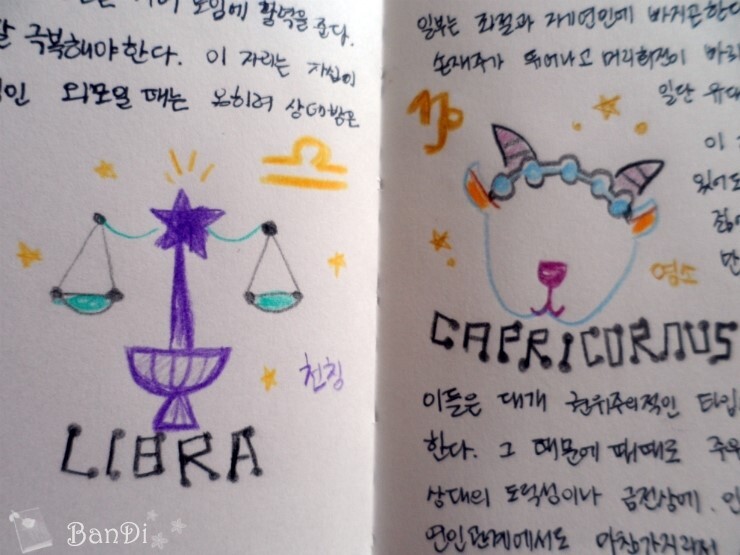 모임에 활력을 준다.
극복해야한다. 이 자리는 자신이
외모일 때는 오히려 상대방은
천칭
LIBRA
일부는 좌절과 자기연민에 빠지곤한다
손재주가 뛰어나고 머리회전이
일단
이
있어도
염소
만
CAPRICORNUS
이들은 대개 권위주의적인 타입
한다. 그 때문에 때때로 주위
상대의 도덕성이나 금전상에
연인관계에서도 마찬가지
BanDi